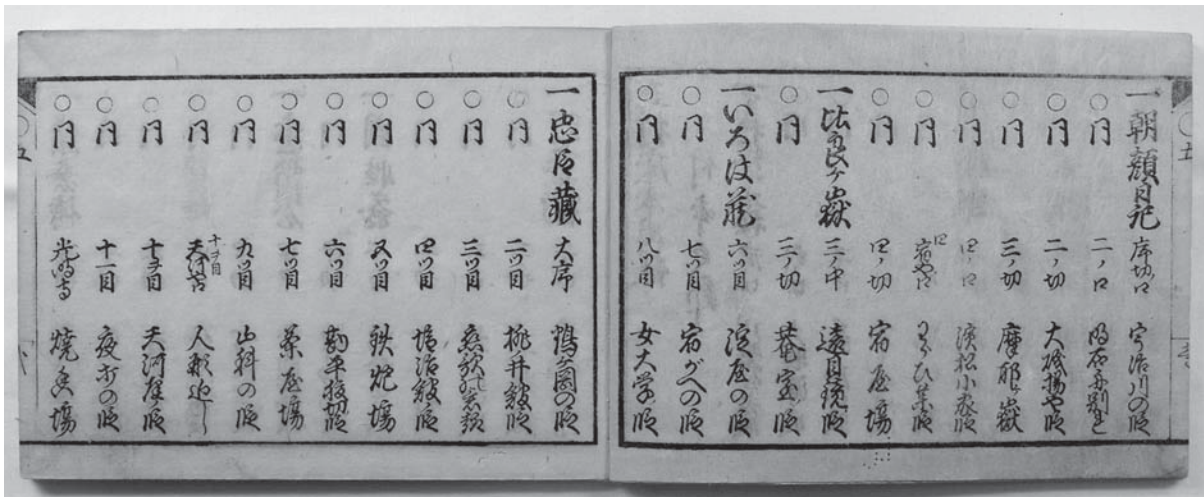 一朝顔日記 序切口 宇治川の段
○同 二ノ口 明石舟別之
○同 二ノ切 大磯揚や段
○同 三ノ切 摩耶嶽
○同 四ノ口 濱松小家段
○同 四宿や口 わらひ薬段
○同 四ノ切 宿屋場
一比良ヶ嶽 三ノ中 遠目鏡段
○同 三ノ切 菴室段
一いろは蔵 六ツ目 淀屋の段
○同 七ツ目 宿がへの段
○同 八ツ目 女大学の段
一忠臣蔵 大序 鶴ヶ岡の段
○同 二ツ目 桃井舘段
○同 三ツ目 恋歌の意趣
○同 四ツ目 塩冶舘段
○同 五ツ目 鉄炮場
○同 六ツ目 勘平切腹段
○同 七ツ目 茶屋場
○同 九ツ目 山科の段
○同 十ヲ目天河や口 人形廻し
○同 十ヲ目 天河屋段
○同 十一目 夜討の段
○同 光明寺 焼香場